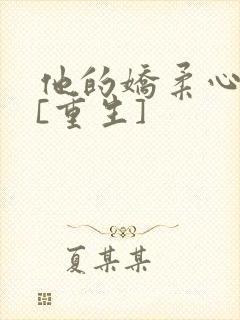 他的娇柔心
[重生]
夏某某